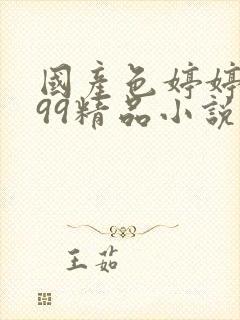 國產色婷婷
99精品小說
王茹